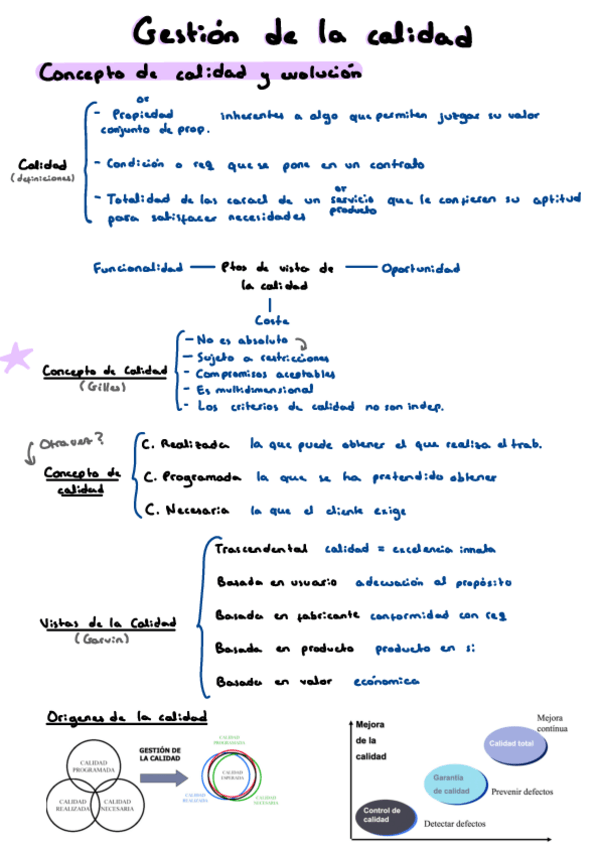 Gestión de la calidad
Concepto de calidad y evolución
or
- Propiedad inherentes a algo que permiten juzgar su valor
conjunto de prop.
Calidad
(definiciones)
- Condición o req que se pone en un contrato
or
- Totalidad de las caract de un servicio que le confieren su aptitud
producto
para satisfacer necesidades
Funcionalidad — Ptos de vista de — Oportunidad
la calidad
Coste
- No es absoluto
- Sujeto a restricciones
Concepto de Calidad
- Compromisos aceptables
(Gilles)
- Es multidimensional
- Los criterios de calidad no son indep.
Otra vez?
Concepto de
calidad
C. Realizada la que puede obtener el que realiza el trab.
C. Programada la que se ha pretendido obtener
C. Necesaria la que el cliente exige
Trascendental calidad = excelencia innata
Basada en usuario adecuación al propósito
Vistas de la Calidad
(Garvin)
Basada en fabricante conformidad con req
Basada en producto producto en si
Basada en valor económica
Origenes de la calidad
CALIDAD
PROGRAMADA
CALIDAD
REALIZADA
CALIDAD
NECESARIA
GESTIÓN DE
LA CALIDAD
CALIDAD
PROGRAMADA
CALIDAD
ESPERADA
CALIDAD
REALIZADA
CALIDAD
NECESARIA
Mejora
de la
calidad
Mejora
continua
Calidad total
Garantía
de calidad
Prevenir defectos
Control de
calidad
Detectar defectos